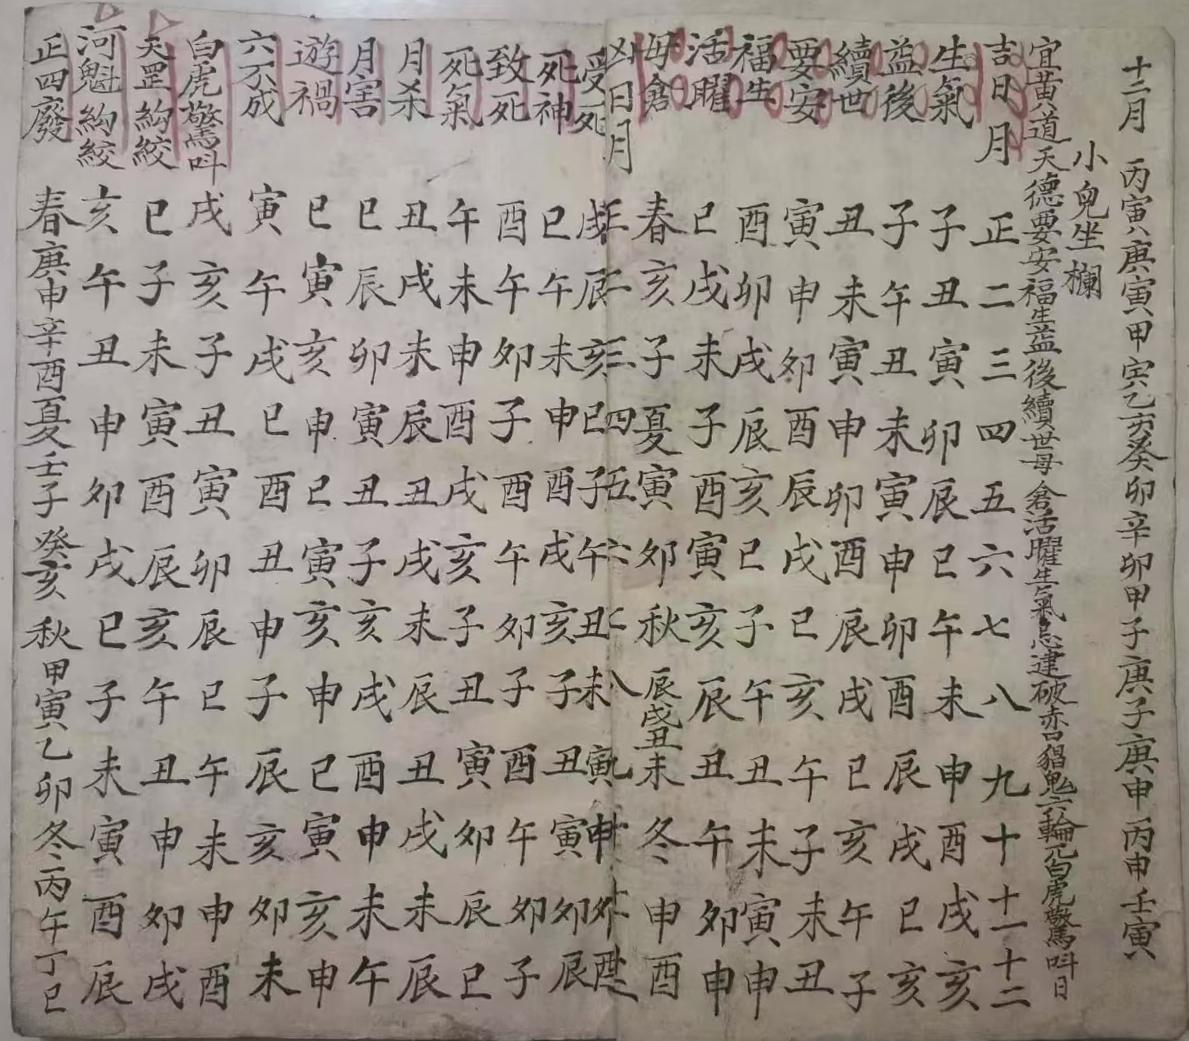 十二月 丙寅庚寅甲寅乙亥癸卯辛卯甲子庚子庚申丙申壬寅
小兒坐欄
宜黃道天德要安福生益後續世母倉活曜生氣忌建破赤口猖鬼六輪元白虎驚呌日
吉日月 正二三四五六七八九十十一十二
生氣 子丑寅卯辰巳午未申酉戌亥
益後 子午丑未寅申卯酉辰戌巳亥
續世 丑未寅申卯酉辰戌巳亥午子
要安 寅申卯酉辰戌巳亥午子未丑
福生 酉卯戌辰亥巳子午丑未寅申
活曜 巳戌未子酉寅亥辰丑午卯申
母倉 春亥子夏寅卯秋辰戌丑未冬申酉
凶日月 正二三四五六七八九十十一十二
受死 戌辰亥巳子午丑未寅申卯酉
死神 巳午未申酉戌亥子丑寅卯辰
致死 酉午卯子酉午卯子酉午卯子
死氣 午未申酉戌亥子丑寅卯辰巳
月杀 丑戌未辰丑戌未辰丑戌未辰
月害 巳辰卯寅丑子亥戌酉申未午
遊禍 巳寅亥申巳寅亥申巳寅亥申
六不成 寅午戌巳酉丑申子辰亥卯未
白虎驚呌 戌亥子丑寅卯辰巳午未申酉
天罡絇絞 巳子未寅酉辰亥午丑申卯戌
河魁絇絞 亥午丑申卯戌巳子未寅酉辰
正四廢 春庚申辛酉夏壬子癸亥秋甲寅乙卯冬丙午丁巳